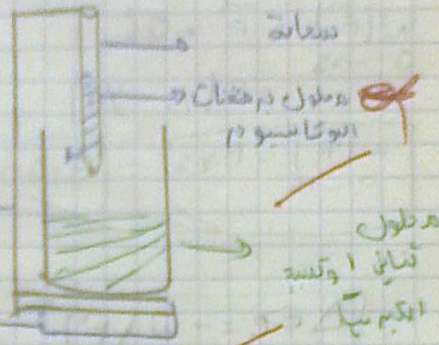 سحاحة
محلول برمنغنات
البوتاسيوم
محلول
ثنائي أوكسيد
الكبريت